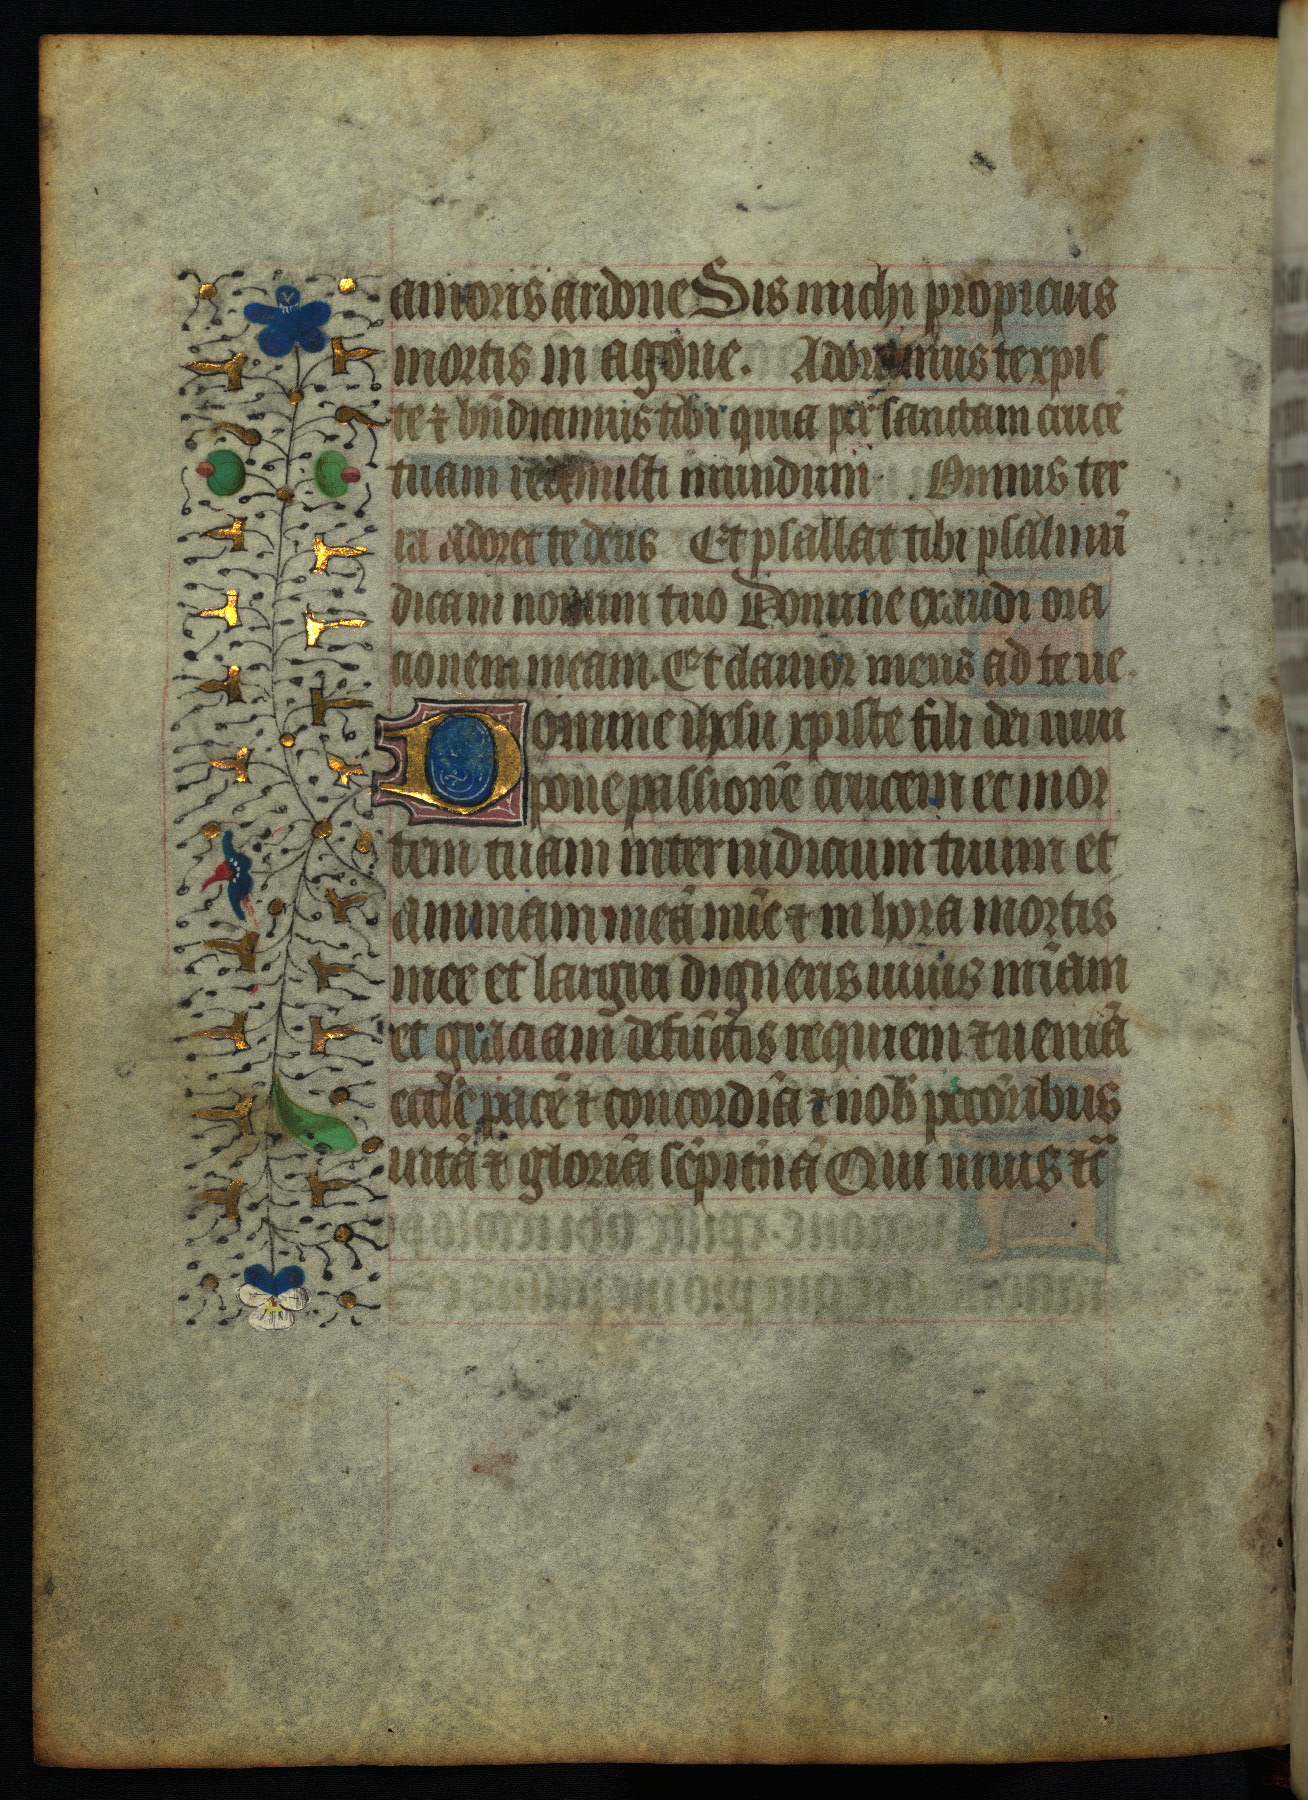 amoris ardore Sis michi propicius
mortis in agone. Adoramus te xpis
te ⁊ bn̄dicimus tibi quia per sanctam crucē
tuam redemisti mundum. Omnis ter
ra adoret te deus Et psallat tibi psalmū
dicam nomini tuo Domine exaudi ora
cionem meam. Et clamor meus ad te ue.
Domine ihesu xpiste fili dei uiui
pone passionē crucem et mor
tem tuam inter iudicium tuum et
animam meā nūc ⁊ in hora mortis
mee et largiri digneris uiuis mīam
et graciam defūctis requiem ⁊ ueniā
eccłie pacē ⁊ concordiā ⁊ nob̄ pccōribus
uitā ⁊ gloriā sēpitnā Qui uiuis ⁊c̄